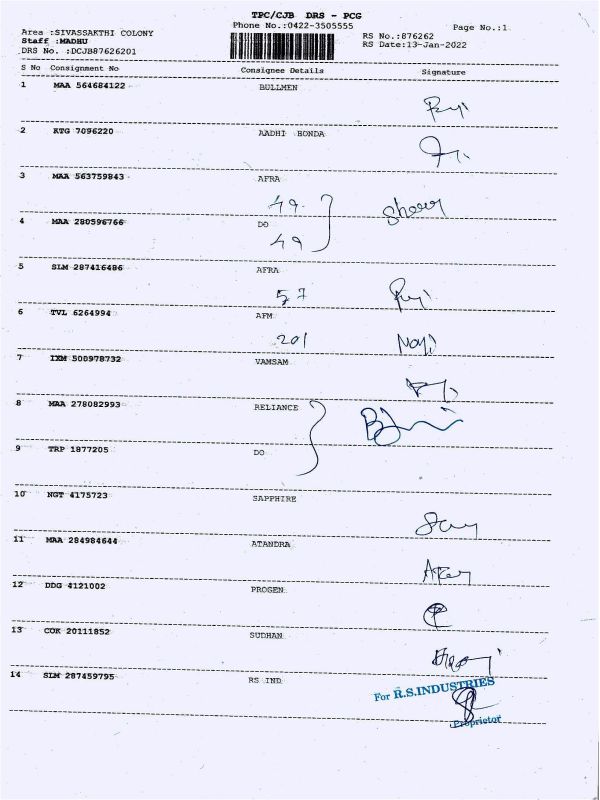 TPC/CJB DRS - PCG
Phone No.:0422-3505555
Page No.:1
Area :SIVASSAKTHI COLONY
Staff :MADHU
DRS No. :DCJB87626201
RS No.:876262
RS Date:13-Jan-2022
S No Consignment No Consignee Details Signature
1 MAA 564684122 BULLMEN
2 KTG 7096220 AADHI HONDA
3 MAA 563759843 AFRA
49
4 MAA 280596766 DO
49
5 SLM 287416486 AFRA
57
6 TVL 6264994 AFM
201
7 IXM 500978732 VAMSAM
8 MAA 278082993 RELIANCE
9 TRP 1877205 DO
10 NGT 4175723 SAPPHIRE
11 MAA 284984644 ATANDRA
12 DDG 4121002 PROGEN
13 COK 20111852 SUDHAN
14 SLM 287459795 RS IND
For R.S.INDUSTRIES
Proprietor